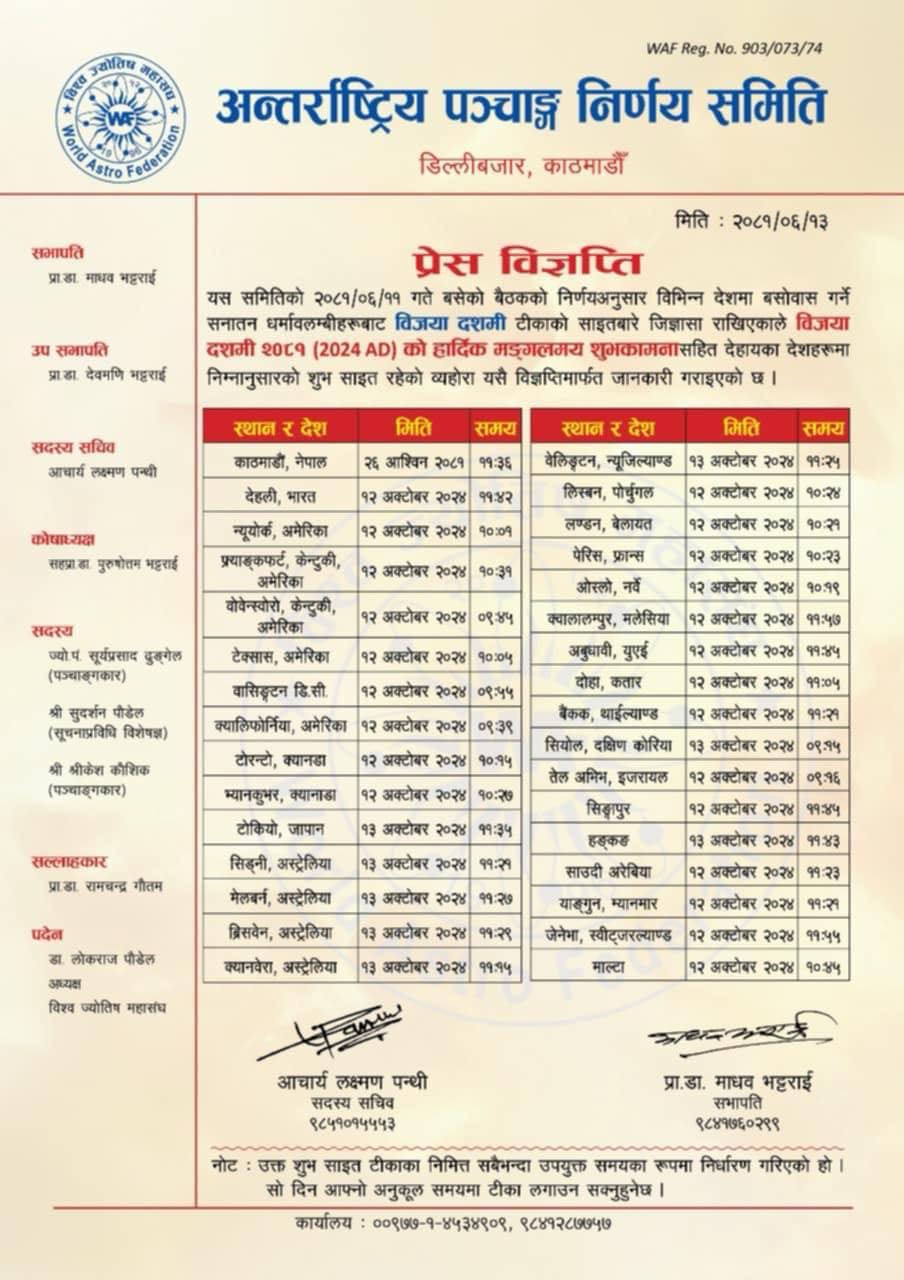 WAF Reg. No. 903/073/74
विश्व ज्योतिष महासंघ
WAF
World Astro Federation
अन्तर्राष्ट्रिय पञ्चाङ्ग निर्णय समिति
डिल्लीबजार, काठमाडौँ
मिति : २०८१/०६/१३
सभापति
प्रा.डा. माधव भट्टराई
उप सभापति
प्रा.डा. देवमणि भट्टराई
सदस्य सचिव
आचार्य लक्ष्मण पन्थी
कोषाध्यक्ष
सहप्रा.डा. पुरुषोतम भट्टराई
सदस्य
ज्यो.पं. सूर्यप्रसाद ढुङ्गेल
(पञ्चाङ्गकार)
श्री सुदर्शन पौडेल
(सूचनाप्रविधि विशेषज्ञ)
श्री श्रीकेश कौशिक
(पञ्चाङ्गकार)
सल्लाहकार
प्रा.डा. रामचन्द्र गौतम
पदेन
डा. लोकराज पौडेल
अध्यक्ष
विश्व ज्योतिष महासंघ
प्रेस विज्ञप्ति
यस समितिको २०८१/०६/११ गते बसेको बैठकको निर्णयअनुसार विभिन्न देशमा बसोवास गर्ने
सनातन धर्मावलम्बीहरूबाट विजया दशमी टीकाको साइतबारे जिज्ञासा राखिएकाले विजया
दशमी २०८१ (2024 AD) को हार्दिक मङ्गलमय शुभकामनासहित देहायका देशहरूमा
निम्नानुसारको शुभ साइत रहेको व्यहोरा यसै विज्ञप्तिमार्फत जानकारी गराइएको छ ।
स्थान र देश मिति समय
काठमाडौं, नेपाल २६ आश्विन २०८१ ११:३६
देहली, भारत १२ अक्टोबर २०२४ ११:४२
न्यूयोर्क, अमेरिका १२ अक्टोबर २०२४ १०:०१
फ्र्याङ्कफर्ट, केन्टुकी,
अमेरिका १२ अक्टोबर २०२४ १०:३१
वोवेन्स्वोरो, केन्टुकी,
अमेरिका १२ अक्टोबर २०२४ ०९:४५
टेक्सास, अमेरिका १२ अक्टोबर २०२४ १०:०५
वासिङ्टन डि.सी. १२ अक्टोबर २०२४ ०९:५५
क्यालिफोर्निया, अमेरिका १२ अक्टोबर २०२४ ०९:३९
टोरन्टो, क्यानडा १२ अक्टोबर २०२४ १०:१५
भ्यानकुभर, क्यानाडा १२ अक्टोबर २०२४ १०:२७
टोकियो, जापान १३ अक्टोबर २०२४ ११:३५
सिड्नी, अस्ट्रेलिया १३ अक्टोबर २०२४ ११:२१
मेलबर्न, अस्ट्रेलिया १३ अक्टोबर २०२४ ११:२७
ब्रिसवेन, अस्ट्रेलिया १३ अक्टोबर २०२४ ११:२९
क्यानवेरा, अस्ट्रेलिया १३ अक्टोबर २०२४ ११:१५
स्थान र देश मिति समय
वेलिङ्टन, न्यूजिल्याण्ड १३ अक्टोबर २०२४ ११:२५
लिस्बन, पोर्चुगल १२ अक्टोबर २०२४ १०:२४
लण्डन, बेलायत १२ अक्टोबर २०२४ १०:२१
पेरिस, फ्रान्स १२ अक्टोबर २०२४ १०:२३
ओस्लो, नर्वे १२ अक्टोबर २०२४ १०:१९
क्वालालम्पुर, मलेसिया १२ अक्टोबर २०२४ ११:५७
अबुधावी, युएई १२ अक्टोबर २०२४ ११:४५
दोहा, कतार १२ अक्टोबर २०२४ ११:०५
बैंकक, थाईल्याण्ड १२ अक्टोबर २०२४ ११:२१
सियोल, दक्षिण कोरिया १३ अक्टोबर २०२४ ०९:१५
तेल अभिभ, इजरायल १२ अक्टोबर २०२४ ०९:१६
सिङ्गापुर १२ अक्टोबर २०२४ ११:४५
हङ्कङ १३ अक्टोबर २०२४ ११:४३
साउदी अरेबिया १२ अक्टोबर २०२४ ११:२३
याङ्गुन, म्यानमार १२ अक्टोबर २०२४ ११:२१
जेनेभा, स्वीट्जरल्याण्ड १२ अक्टोबर २०२४ ११:५५
माल्टा १२ अक्टोबर २०२४ १०:४५
आचार्य लक्ष्मण पन्थी
सदस्य सचिव
९८५१०१५५५३
प्रा.डा. माधव भट्टराई
सभापति
९८४१७६०२९९
नोट : उक्त शुभ साइत टीकाका निमित्त सबैभन्दा उपयुक्त समयका रूपमा निर्धारण गरिएको हो ।
सो दिन आफ्नो अनुकूल समयमा टीका लगाउन सक्नुहुनेछ ।
कार्यालय : ००९७७-१-४५३४९०९, ९८४१२८७७५७